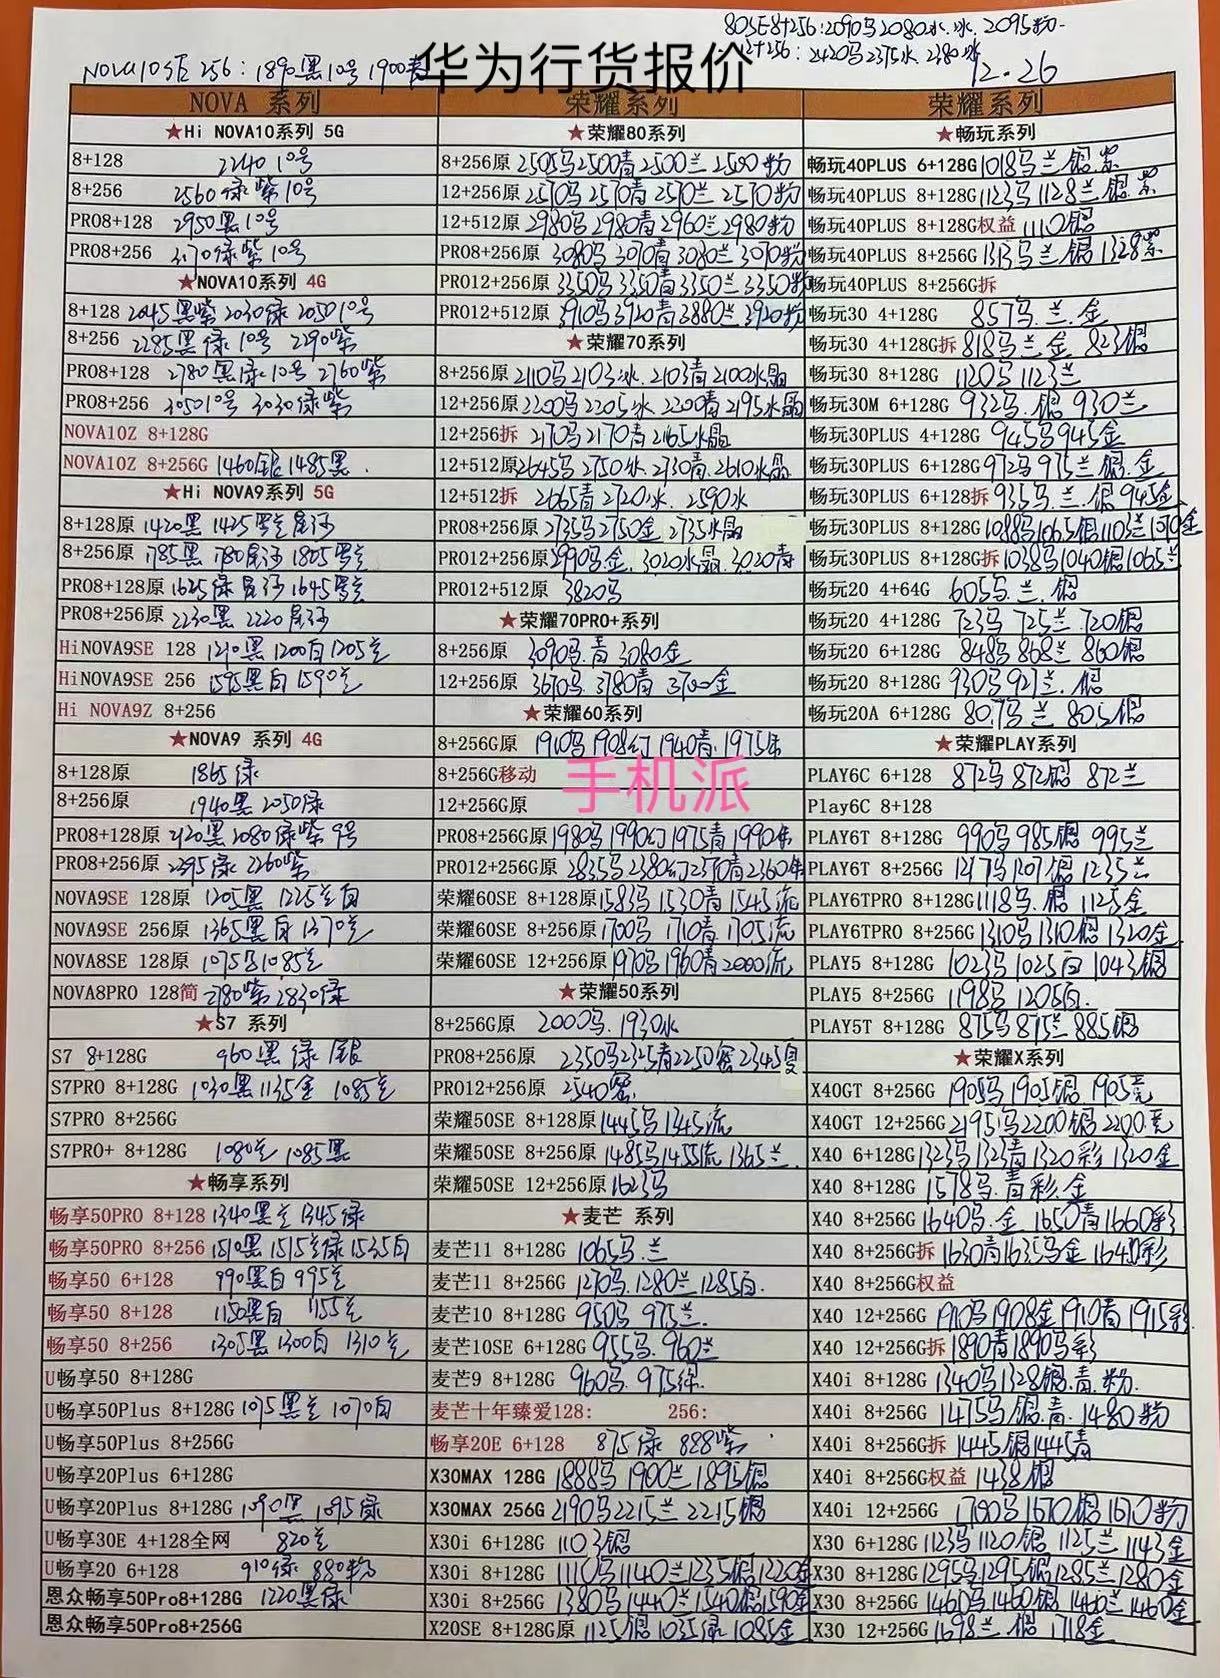 80SE8+256:2090马2080水.冰. 2095粉
12+256:2420马2375水. 2380冰
NOVA10SE 256: 1890黑10号 1900
华为行货报价
12.26
NOVA 系列
★Hi NOVA10系列 5G
8+128 2240 10号
8+256 2560绿紫10号
PRO8+128 2950黑10号
PRO8+256 3170绿紫10号
★NOVA10系列 4G
8+128 2045黑紫2030绿 2050 10号
8+256 2285黑绿10号 2290紫
PRO8+128 2780黑绿10号 2760紫
PRO8+256 3050 10号 3030绿紫
NOVA10Z 8+128G
NOVA10Z 8+256G 1460银1485黑
★Hi NOVA9系列 5G
8+128原 1420黑 1425
8+256原 1785黑 1780 1805
PRO8+128原 1625绿 1645
PRO8+256原 2230黑 2220
HiNOVA9SE 128 1210黑1200白1205兰
HiNOVA9SE 256 1595黑白1590兰
Hi NOVA9Z 8+256
★NOVA9 系列 4G
8+128原 1865绿
8+256原 1940黑 2050绿
PRO8+128原 2120黑2080绿紫9号
PRO8+256原 2295绿2260紫
NOVA9SE 128原 1205黑 1225兰白
NOVA9SE 256原 1365黑白1370兰
NOVA8SE 128原 1085兰
NOVA8PRO 128简 2780紫2830绿
★S7 系列
S7 8+128G 960黑绿银
S7PRO 8+128G 1030黑1135金 1085兰
S7PRO 8+256G
S7PRO+ 8+128G 1080兰 1085黑
★畅享系列
畅享50PRO 8+128 1340黑兰1345绿
畅享50PRO 8+256 1510黑1515兰绿1535白
畅享50 6+128 990黑白995兰
畅享50 8+128 1150黑白 1155兰
畅享50 8+256 1305黑1300白 1310兰
U畅享50 8+128G
U畅享50Plus 8+128G 1075黑兰1070白
U畅享50Plus 8+256G
U畅享20Plus 6+128G
U畅享20Plus 8+128G 1090黑 1095绿
U畅享30E 4+128全网 820兰
U畅享20 6+128 910绿 880粉
恩众畅享50Pro8+128G 1220黑绿
恩众畅享50Pro8+256G
荣耀系列
★荣耀80系列
8+256原 2505马2500青2500兰2500粉
12+256原 2570马2570青2570兰2570粉
12+512原 2980马2980青2960兰2980粉
PRO8+256原 3080马3070青3080兰3070粉
PRO12+256原 3350马3350青3350兰3350粉
PRO12+512原 3910马3920青3880兰3920粉
★荣耀70系列
8+256原 2110马2103冰.2103青2100水晶
12+256原 2200马2205冰 2200青2195水晶
12+256拆 2170马2170青2165水晶
12+512原 2645马2750冰.2730青.2610水晶
12+512拆 2665青2720冰.2590水
PRO8+256原 2735马2750金.2735水晶
PRO12+256原 2990马金.3020水晶.3020青
PRO12+512原 3820马
★荣耀70PRO+系列
8+256原 3090马.青 3080金
12+256原 3670马.3780青 3700金
★荣耀60系列
8+256G原 1910马1908幻1940青.1975
8+256G移动
12+256G原
PRO8+256G原 1980马1990幻1975青1990
PRO12+256G原 2835马2380幻2370青2360
荣耀60SE 8+128原 1583马1530青1545流
荣耀60SE 8+256原 1700马 1710青 1705流
荣耀60SE 12+256原 1970马1960青2000流
★荣耀50系列
8+256G原 2000马.1930水
PRO8+256原 2350马2325青2250密2345夏
PRO12+256原 2540密
荣耀50SE 8+128原 1445马1345流
荣耀50SE 8+256原 1485马1455流1365兰
荣耀50SE 12+256原 1623马
★麦芒 系列
麦芒11 8+128G 1065马.兰
麦芒11 8+256G 1270马.1280兰1285白
麦芒10 8+128G 950马 975兰
麦芒10SE 6+128G 955马.960兰
麦芒9 8+128G 960马.975绿
麦芒十年臻爱128: 256:
畅享20E 6+128 875绿 888紫
X30MAX 128G 1888马1900兰1895银
X30MAX 256G 2190马2215兰2215银
X30i 6+128G 1103银
X30i 8+128G 1110马1140兰1235银1220金
X30i 8+256G 1380马1440兰1540银1590金
X20SE 8+128G原 1125银1035绿1085金
手机派
荣耀系列
★畅玩系列
畅玩40PLUS 6+128G 1018马兰银紫
畅玩40PLUS 8+128G 1123马1128兰银紫
畅玩40PLUS 8+128G权益 1110银
畅玩40PLUS 8+256G 1313马兰银1328紫
畅玩40PLUS 8+256G拆
畅玩30 4+128G 857马.兰.金
畅玩30 4+128G拆 818马兰金 823银
畅玩30 8+128G 1120马 1123兰
畅玩30M 6+128G 932马.银930兰
畅玩30PLUS 4+128G 945马945金
畅玩30PLUS 6+128G 972马975兰银.金
畅玩30PLUS 6+128拆 935马.兰.银945金
畅玩30PLUS 8+128G 1088马1065银1103兰1070金
畅玩30PLUS 8+128G拆 1038马1040银1065兰
畅玩20 4+64G 605马.兰.银
畅玩20 4+128G 723马 725兰.720银
畅玩20 6+128G 848马868兰 860银
畅玩20 8+128G 930马927兰.银
畅玩20A 6+128G 807马兰805银
★荣耀PLAY系列
PLAY6C 6+128 872马872银 872兰
Play6C 8+128
PLAY6T 8+128G 990马985银995兰
PLAY6T 8+256G 1217马1207银1235兰
PLAY6TPRO 8+128G 1118马.银1125金
PLAY6TPRO 8+256G 1310马1310银1320金
PLAY5 8+128G 1023马1025白1043银
PLAY5 8+256G 1198马1205白.
PLAY5T 8+128G 875马875兰885银
★荣耀X系列
X40GT 8+256G 1905马1905银.1905竞
X40GT 12+256G 2195马2200银2200竞
X40 6+128G 1323马1323青1320彩1320金
X40 8+128G 1578马.青彩.金
X40 8+256G 1640马.金.1650青1660彩
X40 8+256G拆 1630青1635马金1640彩
X40 8+256G权益
X40 12+256G 1910马1908金1910青1915彩
X40 12+256G拆 1890青1890马彩
X40i 8+128G 1340马1328银.青.粉.
X40i 8+256G 1475马银.青.1480粉
X40i 8+256G拆 1445银1445青
X40i 8+256G权益 1438银
X40i 12+256G 1700马1610银1610粉
X30 6+128G 1123马1120银 1125兰1143金
X30 8+128G 1295马1295银1285兰1280金
X30 8+256G 1460马1460银1460兰1460金
X30 12+256G 1698兰.银 1718金